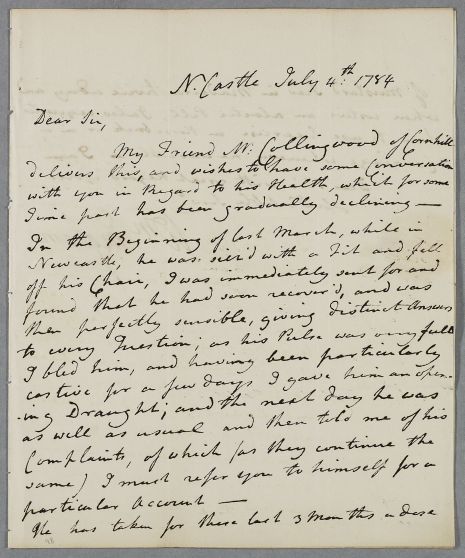 N. Castle July 4.th 1784
Dear Sir,
My Friend Mr. Collingwood of Cornhill
delivers this, and wishes to have some Conversation
with you in Regard to his Health, which for some
Time past has been gradually declining —
In the Beginning of last March, while in
Newcastle, he was seiz'd with a Fit and fell
off his Chair, I was immediately sent for and
found that he had soon recover'd, and was
then perfectly sensible, giving distinct Answers
to every Question; as his Pulse was very full
I bled him, and having been particularly
costive for a few days I gave him an open-
ing Draught; and the next day he was
as well as usual and then told me of his
Complaints, of which (as they continue the
same) I must refer you to himself for a
particular Account —
He has taken for these last 3 Months a dose